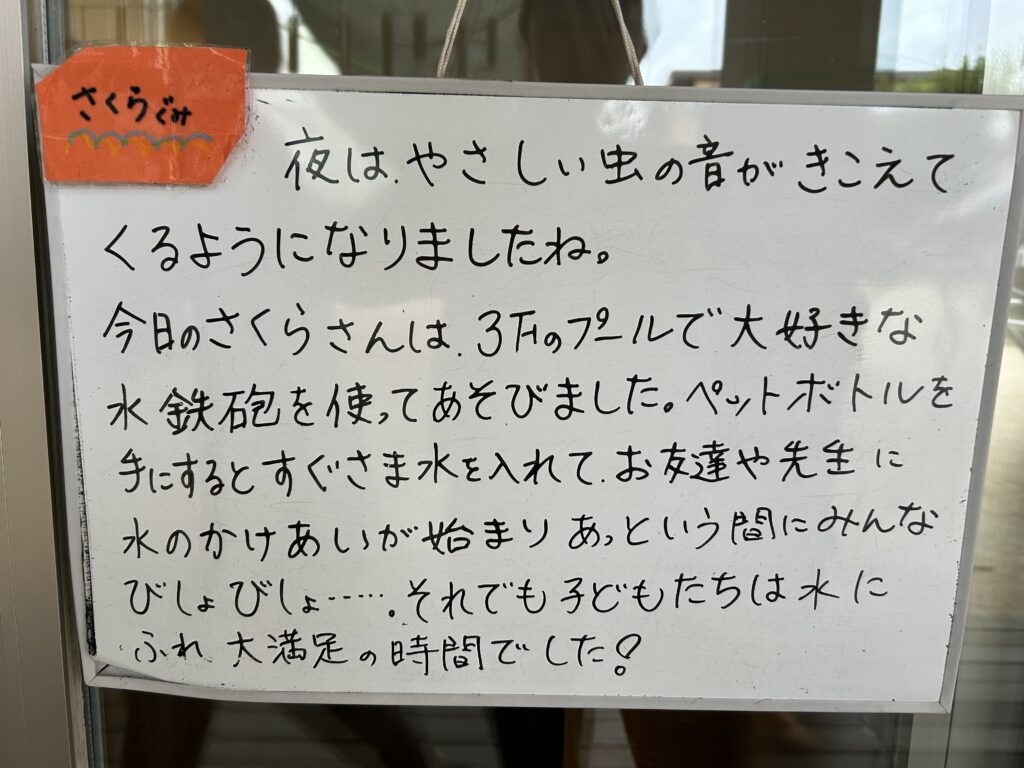 さくらぐみ
夜は、やさしい虫の音がきこえて
くるようになりましたね。
今日のさくらさんは、3才のプールで大好きな
水鉄砲を使ってあそびました。ペットボトルを
手にするとすぐさま水を入れて、お友達や先生に
水のかけあいが始まり あっという間にみんな
びしょびしょ……。それでも子どもたちは水に
ふれ 大満足の時間でした!